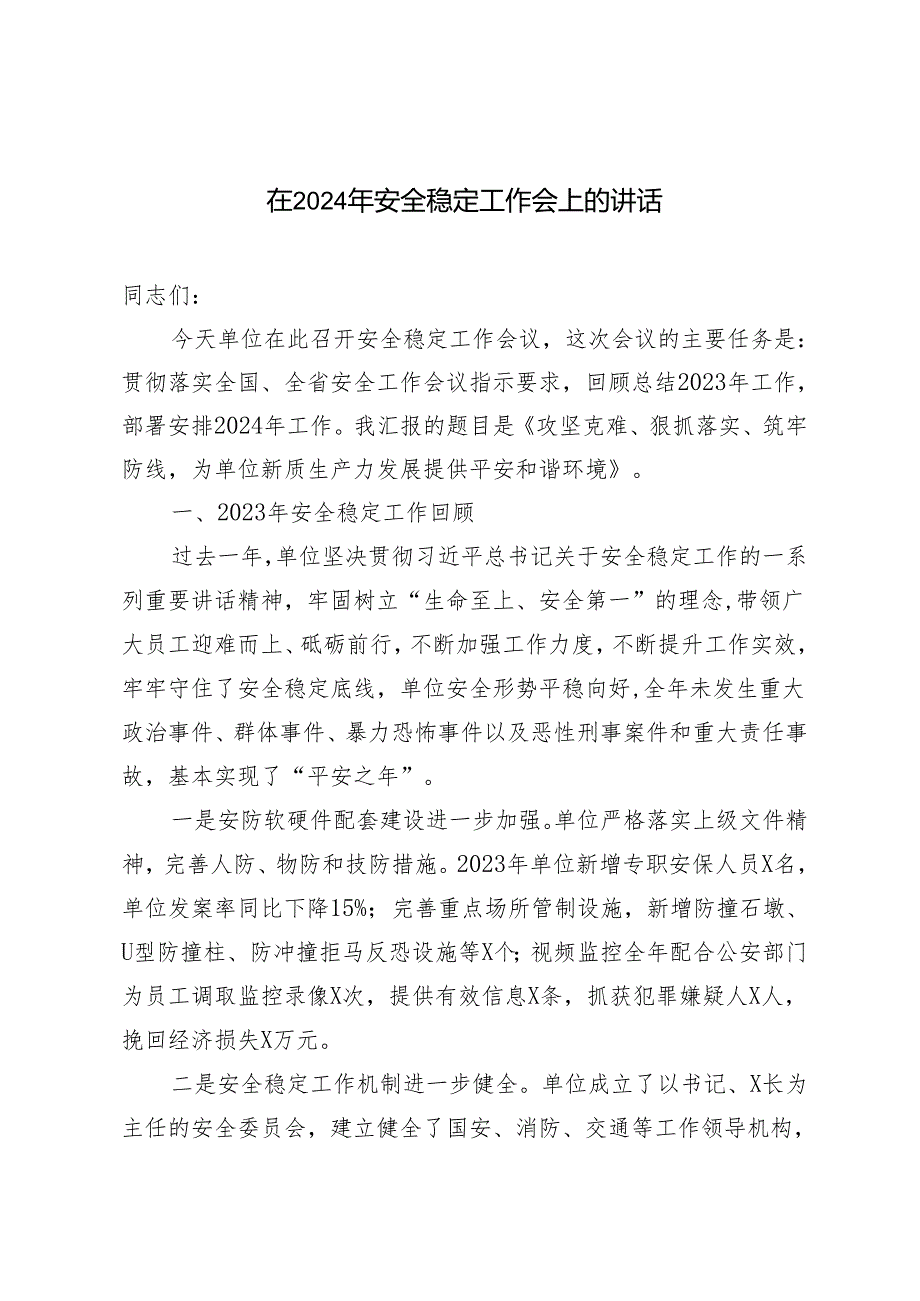 在2024年安全稳定工作会上的讲话
同志们：
今天单位在此召开安全稳定工作会议，这次会议的主要任务是：
贯彻落实全国、全省安全工作会议指示要求，回顾总结2023年工作，
部署安排2024年工作。我汇报的题目是《攻坚克难、狠抓落实、筑牢
防线，为单位新质生产力发展提供平安和谐环境》。
一、2023年安全稳定工作回顾
过去一年,单位坚决贯彻习近平总书记关于安全稳定工作的一系
列重要讲话精神，牢固树立“生命至上、安全第一”的理念,带领广
大员工迎难而上、砥砺前行，不断加强工作力度，不断提升工作实效，
牢牢守住了安全稳定底线，单位安全形势平稳向好,全年未发生重大
政治事件、群体事件、暴力恐怖事件以及恶性刑事案件和重大责任事
故，基本实现了“平安之年”。
一是安防软硬件配套建设进一步加强。单位严格落实上级文件精
神，完善人防、物防和技防措施。2023年单位新增专职安保人员X名，
单位发案率同比下降15%；完善重点场所管制设施，新增防撞石墩、
U型防撞柱、防冲撞拒马反恐设施等X个；视频监控全年配合公安部门
为员工调取监控录像X次，提供有效信息X条，抓获犯罪嫌疑人X人，
挽回经济损失X万元。
二是安全稳定工作机制进一步健全。单位成立了以书记、X长为
主任的安全委员会，建立健全了国安、消防、交通等工作领导机构，